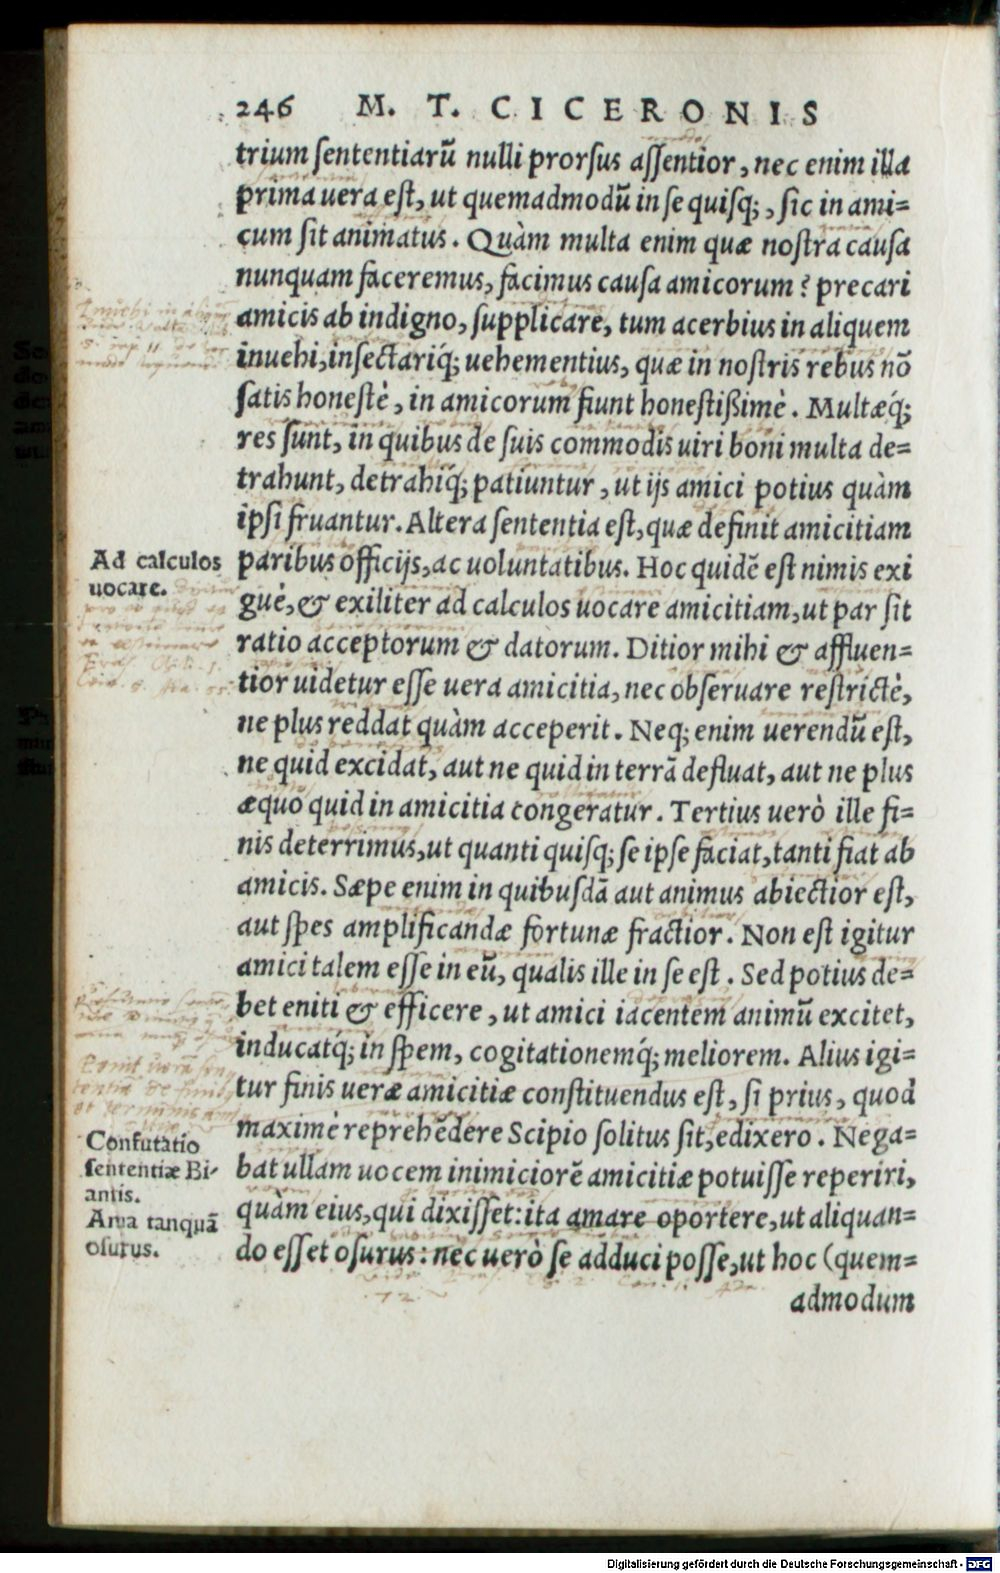 246 M. T. CICERONIS
trium sententiarū nulli prorsus assentior, nec enim illa
prima uera est, ut quemadmodū in se quisq;, sic in ami=
cum sit animatus. Quàm multa enim quæ nostra causa
nunquam faceremus, facimus causa amicorum? precari
amicis ab indigno, supplicare, tum acerbius in aliquem
inuehi, insectariq́; uehementius, quæ in nostris rebus nō
satis honestè, in amicorum fiunt honestißimè. Multæq́;
res sunt, in quibus de suis commodis uiri boni multa de=
trahunt, detrahiq́; patiuntur, ut ijs amici potius quàm
ipsi fruantur. Altera sententia est, quæ definit amicitiam
Ad calculos
uocare.
paribus officijs, ac uoluntatibus. Hoc quidē est nimis exi
guè, & exiliter ad calculos uocare amicitiam, ut par sit
ratio acceptorum & datorum. Ditior mihi & affluen=
tior uidetur esse uera amicitia, nec obseruare restrictè,
ne plus reddat quàm acceperit. Neq; enim uerendū est,
ne quid excidat, aut ne quid in terrā defluat, aut ne plus
æquo quid in amicitia congeratur. Tertius uerò ille fi=
nis deterrimus, ut quanti quisq; se ipse faciat, tanti fiat ab
amicis. Sæpe enim in quibusdā aut animus abiectior est,
aut spes amplificandæ fortunæ fractior. Non est igitur
amici talem esse in eū, qualis ille in se est. Sed potius de=
bet eniti & efficere, ut amici iacentem animū excitet,
inducatq́; in spem, cogitationemq́; meliorem. Alius igi=
tur finis ueræ amicitiæ constituendus est, si prius, quod
maximè reprehēdere Scipio solitus sit, edixero. Nega=
Confutatio
sententiæ Bi-
antis.
Ama tanquā
osurus.
bat ullam uocem inimiciorē amicitiæ potuisse reperiri,
quàm eius, qui dixisset: ita amare oportere, ut aliquan=
do esset osurus: nec uerò se adduci posse, ut hoc (quem=
admodum
Digitalisierung gefördert durch die Deutsche Forschungsgemeinschaft - DFG